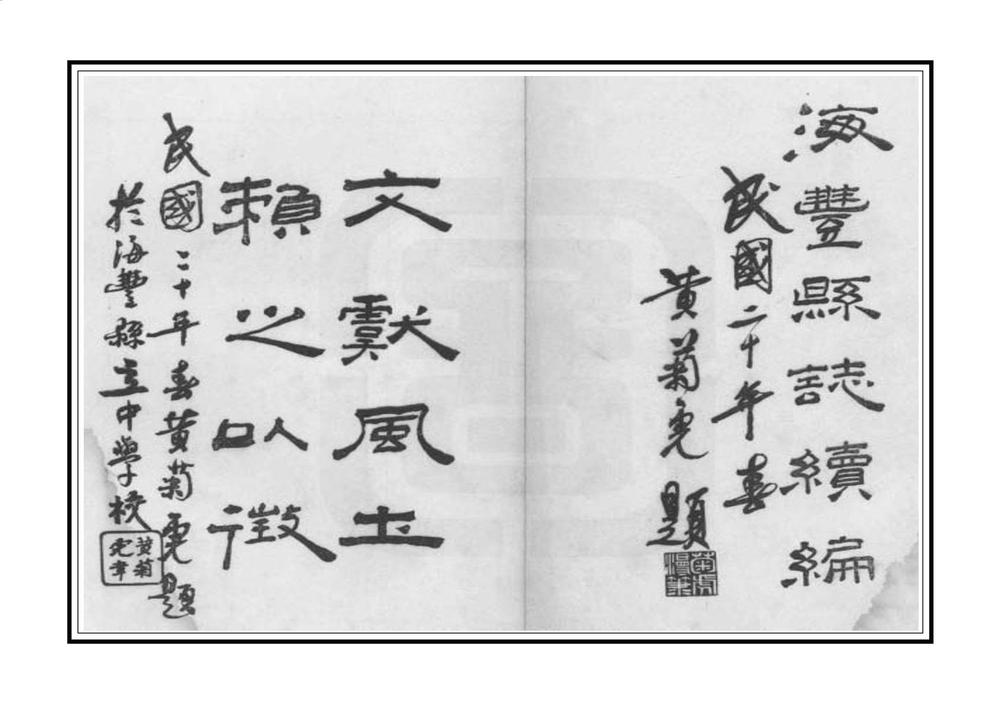 海豐縣誌續編
民國二十年春
黃菊虎題
文獻風土
賴之以徵
民國二十年春黃菊虎題
於海豐縣立中學校
黃菊虎章